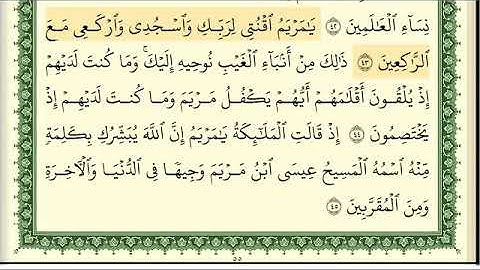 نِسَآءِ ٱلْعَـٰلَمِينَ ٤٢ يَـٰمَرْيَمُ ٱقْنُتِى لِرَبِّكِ وَٱسْجُدِى وَٱرْكَعِى مَعَ
ٱلرَّٰكِعِينَ ٤٣ ذَٰلِكَ مِنْ أَنۢبَآءِ ٱلْغَيْبِ نُوحِيهِ إِلَيْكَ ۚ وَمَا كُنتَ لَدَيْهِمْ
إِذْ يُلْقُونَ أَقْلَـٰمَهُمْ أَيُّهُمْ يَكْفُلُ مَرْيَمَ وَمَا كُنتَ لَدَيْهِمْ إِذْ
يَخْتَصِمُونَ ٤٤ إِذْ قَالَتِ ٱلْمَلَـٰٓئِكَةُ يَـٰمَرْيَمُ إِنَّ ٱللَّهَ يُبَشِّرُكِ بِكَلِمَةٍ
مِّنْهُ ٱسْمُهُ ٱلْمَسِيحُ عِيسَى ٱبْنُ مَرْيَمَ وَجِيهًا فِى ٱلدُّنْيَا وَٱلْـَٔاخِرَةِ
وَمِنَ ٱلْمُقَرَّبِينَ ٤٥